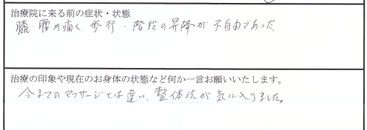 治療院に来る前の症状・状態
膝・腰の痛く 歩行・階段の昇降が不自由であった
治療の印象や現在のお身体の状態など何か一言お願いいたします。
今までのマッサージとは違い、整体法が気に入りました。